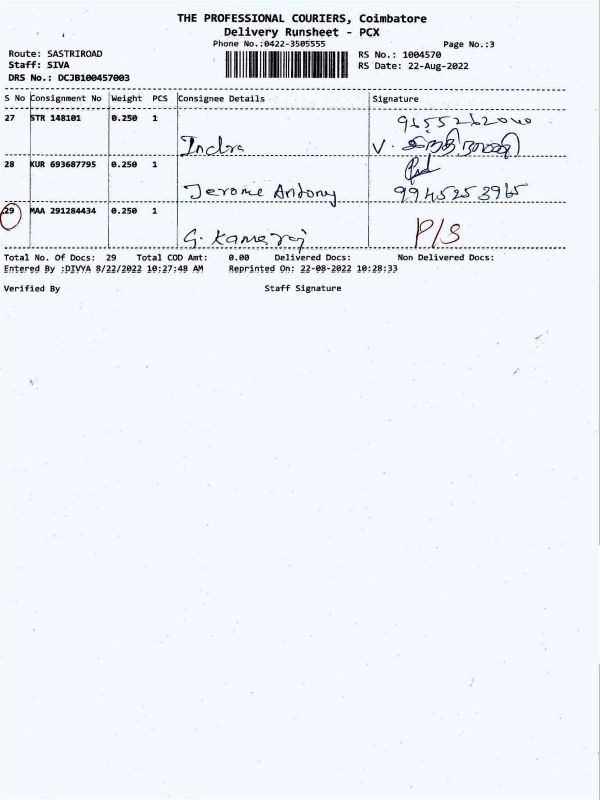 THE PROFESSIONAL COURIERS, Coimbatore
Delivery Runsheet - PCX
Phone No.:0422-3505555
Page No.:3
Route: SASTRIROAD
RS No.: 1004570
Staff: SIVA
RS Date: 22-Aug-2022
DRS No.: DCJB100457003
S No Consignment No Weight PCS Consignee Details Signature
27 STR 148101 0.250 1
Indra V.
28 KUR 693687795 0.250 1
Jerome Antony 9945253965
29 MAA 291284434 0.250 1
G. Kamaraj P/S
Total No. Of Docs: 29 Total COD Amt: 0.00 Delivered Docs: Non Delivered Docs:
Entered By :DIVYA 8/22/2022 10:27:48 AM Reprinted On: 22-08-2022 10:28:33
Verified By Staff Signature